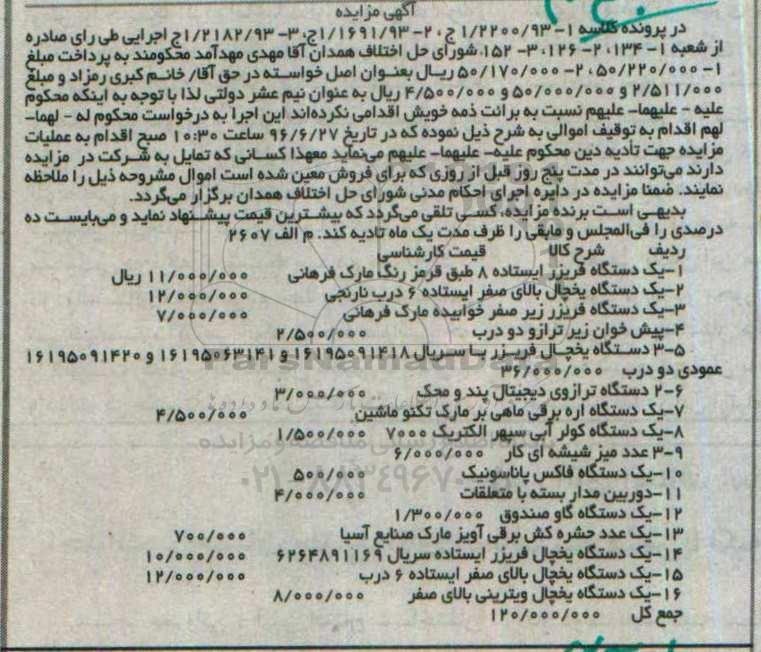 آگهی مزایده
در پرونده کلاسه ۱- ۱/۲۲۰۰/۹۳ ج، ۲- ۱/۱۶۹۱/۹۳ج، ۳- ۱/۲۱۸۲/۹۳ج اجرایی طی رای صادره
از شعبه ۱- ۱۳۴، ۲- ۱۲۶، ۳- ۱۵۲ شورای حل اختلاف همدان آقا مهدی مهدآمد محکومند به پرداخت مبلغ
۱- ۵۰/۲۲۰/۰۰۰، ۲- ۵۰/۱۷۰/۰۰۰ ریال بعنوان اصل خواسته در حق آقا/ خانم کبری رمزاد و مبلغ
۲/۵۱۱/۰۰۰ و ۵۰/۰۰۰/۰۰۰ و ۴/۵۰۰/۰۰۰ ریال به عنوان نیم عشر دولتی لذا با توجه به اینکه محکوم
علیه - علیهما- علیهم نسبت به برائت ذمه خویش اقدامی نکرده‌اند این اجرا به درخواست محکوم له - لهما-
لهم اقدام به توقیف اموالی به شرح ذیل نموده که در تاریخ ۹۶/۶/۲۷ ساعت ۱۰:۳۰ صبح اقدام به عملیات
مزایده جهت تأدیه دین محکوم علیه- علیهما- علیهم می‌نماید معهذا کسانی که تمایل به شرکت در مزایده
دارند می‌توانند در مدت پنج روز قبل از روزی که برای فروش معین شده است اموال مشروحه ذیل را ملاحظه
نمایند. ضمنا مزایده در دایره اجرای احکام مدنی شورای حل اختلاف همدان برگزار می‌گردد.
بدیهی است برنده مزایده، کسی تلقی می‌گردد که بیشترین قیمت پیشنهاد نماید و می‌بایست ده
درصدی را فی‌المجلس و مابقی را ظرف مدت یک ماه تادیه کند. م الف ۲۶۰۷
ردیف شرح کالا قیمت کارشناسی
۱-یک دستگاه فریزر ایستاده ۸ طبق قرمز رنگ مارک فرهانی ۱۱/۰۰۰/۰۰۰ ریال
۲-یک دستگاه یخچال بالای صفر ایستاده ۶ درب نارنجی ۱۲/۰۰۰/۰۰۰
۳-یک دستگاه فریزر زیر صفر خوابیده مارک فرهانی ۷/۰۰۰/۰۰۰
۴-پیش خوان زیر ترازو دو درب ۲/۵۰۰/۰۰۰
۵-۳ دستگاه یخچال فریزر با سریال ۱۶۱۹۵۰۹۱۴۱۸ و ۱۶۱۹۵۰۶۳۱۴۱ و ۱۶۱۹۵۰۹۱۴۲۰
عمودی دو درب ۳۶/۰۰۰/۰۰۰
۶-۲ دستگاه ترازوی دیجیتال پند و محک ۳/۰۰۰/۰۰۰
۷-یک دستگاه اره برقی ماهی بر مارک تکنو ماشین ۴/۵۰۰/۰۰۰
۸-یک دستگاه کولر آبی سپهر الکتریک ۷۰۰۰ ۱/۵۰۰/۰۰۰
۹-۳ عدد میز شیشه ای کار ۶/۰۰۰/۰۰۰
۱۰-یک دستگاه فاکس پاناسونیک ۵۰۰/۰۰۰
۱۱-دوربین مدار بسته با متعلقات ۴/۰۰۰/۰۰۰
۱۲-یک دستگاه گاو صندوق ۱/۳۰۰/۰۰۰
۱۳-یک عدد حشره کش برقی آویز مارک صنایع آسیا ۷۰۰/۰۰۰
۱۴-یک دستگاه یخچال فریزر ایستاده سریال ۶۲۶۴۸۹۱۱۶۹ ۱۰/۰۰۰/۰۰۰
۱۵-یک دستگاه یخچال بالای صفر ایستاده ۶ درب ۱۲/۰۰۰/۰۰۰
۱۶-یک دستگاه یخچال ویترینی بالای صفر ۸/۰۰۰/۰۰۰
جمع کل ۱۲۰/۰۰۰/۰۰۰
ParsNamadData
۰۲۱-۸۸۳۴۹۶۷۰